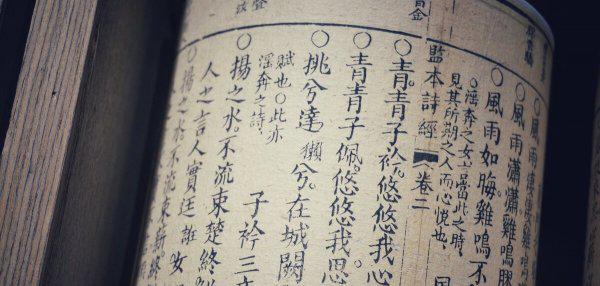 風雨瀟瀟雞鳴膠
○風雨如晦雞鳴不
○淫奔之女言當此之時
見其所期之人而心悅也
監本詩經 卷二 國
音金
○青青子衿。悠悠我心
○青青子佩。悠悠我思
○挑兮達獺兮。在城闕
賦也○此亦
淫奔之詩
子衿三
○揚之水。不流束楚終
人之言人實廷誑女
○揚之水不流束薪終